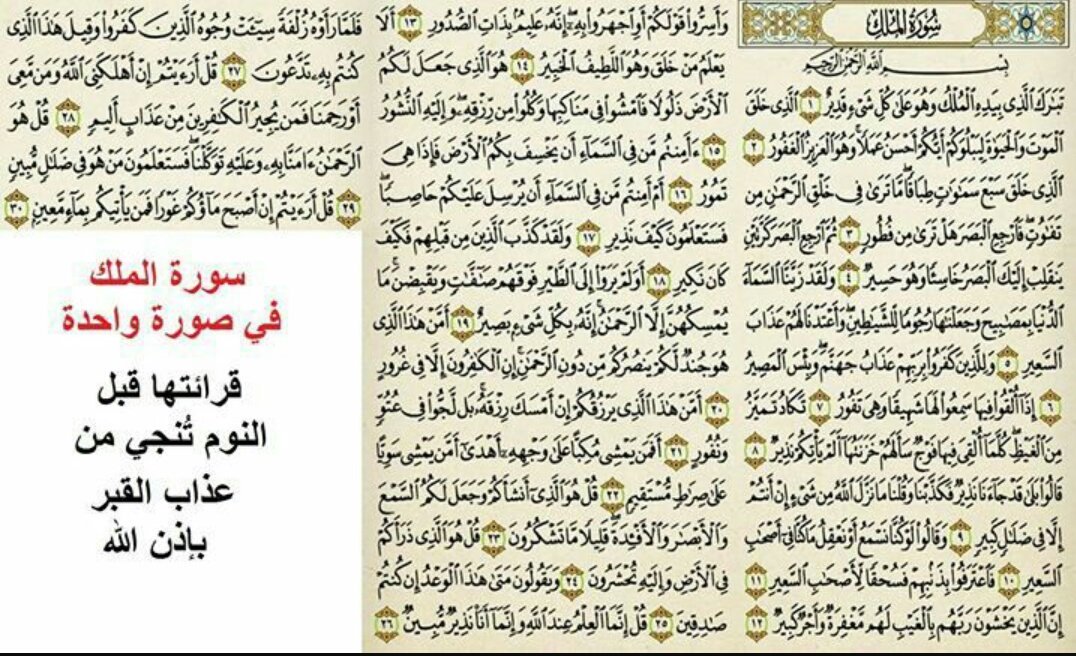 سُورَةُ المُلْكِ
بِسْمِ اللَّهِ الرَّحْمَٰنِ الرَّحِيمِ
تَبَٰرَكَ ٱلَّذِى بِيَدِهِ ٱلْمُلْكُ وَهُوَ عَلَىٰ كُلِّ شَىْءٍ قَدِيرٌ ١ ٱلَّذِى خَلَقَ
ٱلْمَوْتَ وَٱلْحَيَوٰةَ لِيَبْلُوَكُمْ أَيُّكُمْ أَحْسَنُ عَمَلًا وَهُوَ ٱلْعَزِيزُ ٱلْغَفُورُ ٢
ٱلَّذِى خَلَقَ سَبْعَ سَمَٰوَٰتٍ طِبَاقًا مَّا تَرَىٰ فِى خَلْقِ ٱلرَّحْمَٰنِ مِن
تَفَٰوُتٍ فَٱرْجِعِ ٱلْبَصَرَ هَلْ تَرَىٰ مِن فُطُورٍ ٣ ثُمَّ ٱرْجِعِ ٱلْبَصَرَ كَرَّتَيْنِ
يَنقَلِبْ إِلَيْكَ ٱلْبَصَرُ خَاسِئًا وَهُوَ حَسِيرٌ ٤ وَلَقَدْ زَيَّنَّا ٱلسَّمَآءَ
ٱلدُّنْيَا بِمَصَٰبِيحَ وَجَعَلْنَٰهَا رُجُومًا لِّلشَّيَٰطِينِ وَأَعْتَدْنَا لَهُمْ عَذَابَ
ٱلسَّعِيرِ ٥ وَلِلَّذِينَ كَفَرُوا۟ بِرَبِّهِمْ عَذَابُ جَهَنَّمَ وَبِئْسَ ٱلْمَصِيرُ
٦ إِذَآ أُلْقُوا۟ فِيهَا سَمِعُوا۟ لَهَا شَهِيقًا وَهِىَ تَفُورُ ٧ تَكَادُ تَمَيَّزُ
مِنَ ٱلْغَيْظِ كُلَّمَآ أُلْقِىَ فِيهَا فَوْجٌ سَأَلَهُمْ خَزَنَتُهَآ أَلَمْ يَأْتِكُمْ نَذِيرٌ ٨
قَالُوا۟ بَلَىٰ قَدْ جَآءَنَا نَذِيرٌ فَكَذَّبْنَا وَقُلْنَا مَا نَزَّلَ ٱللَّهُ مِن شَىْءٍ إِنْ أَنتُمْ
إِلَّا فِى ضَلَٰلٍ كَبِيرٍ ٩ وَقَالُوا۟ لَوْ كُنَّا نَسْمَعُ أَوْ نَعْقِلُ مَا كُنَّا فِىٓ أَصْحَٰبِ
ٱلسَّعِيرِ ١٠ فَٱعْتَرَفُوا۟ بِذَنۢبِهِمْ فَسُحْقًا لِّأَصْحَٰبِ ٱلسَّعِيرِ ١١
إِنَّ ٱلَّذِينَ يَخْشَوْنَ رَبَّهُم بِٱلْغَيْبِ لَهُم مَّغْفِرَةٌ وَأَجْرٌ كَبِيرٌ ١٢
وَأَسِرُّوا۟ قَوْلَكُمْ أَوِ ٱجْهَرُوا۟ بِهِۦٓ إِنَّهُۥ عَلِيمٌۢ بِذَاتِ ٱلصُّدُورِ ١٣ أَلَا
يَعْلَمُ مَنْ خَلَقَ وَهُوَ ٱللَّطِيفُ ٱلْخَبِيرُ ١٤ هُوَ ٱلَّذِى جَعَلَ لَكُمُ
ٱلْأَرْضَ ذَلُولًا فَٱمْشُوا۟ فِى مَنَاكِبِهَا وَكُلُوا۟ مِن رِّزْقِهِۦ وَإِلَيْهِ ٱلنُّشُورُ
١٥ ءَأَمِنتُم مَّن فِى ٱلسَّمَآءِ أَن يَخْسِفَ بِكُمُ ٱلْأَرْضَ فَإِذَا هِىَ
تَمُورُ ١٦ أَمْ أَمِنتُم مَّن فِى ٱلسَّمَآءِ أَن يُرْسِلَ عَلَيْكُمْ حَاصِبًا
فَسَتَعْلَمُونَ كَيْفَ نَذِيرِ ١٧ وَلَقَدْ كَذَّبَ ٱلَّذِينَ مِن قَبْلِهِمْ فَكَيْفَ
كَانَ نَكِيرِ ١٨ أَوَلَمْ يَرَوْا۟ إِلَى ٱلطَّيْرِ فَوْقَهُمْ صَٰٓفَّٰتٍ وَيَقْبِضْنَ مَا
يُمْسِكُهُنَّ إِلَّا ٱلرَّحْمَٰنُ إِنَّهُۥ بِكُلِّ شَىْءٍۭ بَصِيرٌ ١٩ أَمَّنْ هَٰذَا ٱلَّذِى
هُوَ جُندٌ لَّكُمْ يَنصُرُكُم مِّن دُونِ ٱلرَّحْمَٰنِ إِنِ ٱلْكَٰفِرُونَ إِلَّا فِى غُرُورٍ
٢٠ أَمَّنْ هَٰذَا ٱلَّذِى يَرْزُقُكُمْ إِنْ أَمْسَكَ رِزْقَهُۥ بَل لَّجُّوا۟ فِى عُتُوٍّ
وَنُفُورٍ ٢١ أَفَمَن يَمْشِى مُكِبًّا عَلَىٰ وَجْهِهِۦٓ أَهْدَىٰٓ أَمَّن يَمْشِى سَوِيًّا
عَلَىٰ صِرَٰطٍ مُّسْتَقِيمٍ ٢٢ قُلْ هُوَ ٱلَّذِىٓ أَنشَأَكُمْ وَجَعَلَ لَكُمُ ٱلسَّمْعَ
وَٱلْأَبْصَٰرَ وَٱلْأَفْـِٔدَةَ قَلِيلًا مَّا تَشْكُرُونَ ٢٣ قُلْ هُوَ ٱلَّذِى ذَرَأَكُمْ
فِى ٱلْأَرْضِ وَإِلَيْهِ تُحْشَرُونَ ٢٤ وَيَقُولُونَ مَتَىٰ هَٰذَا ٱلْوَعْدُ إِن كُنتُمْ
صَٰدِقِينَ ٢٥ قُلْ إِنَّمَا ٱلْعِلْمُ عِندَ ٱللَّهِ وَإِنَّمَآ أَنَا۠ نَذِيرٌ مُّبِينٌ ٢٦
فَلَمَّا رَأَوْهُ زُلْفَةً سِيٓـَٔتْ وُجُوهُ ٱلَّذِينَ كَفَرُوا۟ وَقِيلَ هَٰذَا ٱلَّذِى
كُنتُم بِهِۦ تَدَّعُونَ ٢٧ قُلْ أَرَءَيْتُمْ إِنْ أَهْلَكَنِىَ ٱللَّهُ وَمَن مَّعِىَ
أَوْ رَحِمَنَا فَمَن يُجِيرُ ٱلْكَٰفِرِينَ مِنْ عَذَابٍ أَلِيمٍ ٢٨ قُلْ هُوَ
ٱلرَّحْمَٰنُ ءَامَنَّا بِهِۦ وَعَلَيْهِ تَوَكَّلْنَا فَسَتَعْلَمُونَ مَنْ هُوَ فِى ضَلَٰلٍ مُّبِينٍ
٢٩ قُلْ أَرَءَيْتُمْ إِنْ أَصْبَحَ مَآؤُكُمْ غَوْرًا فَمَن يَأْتِيكُم بِمَآءٍ مَّعِينٍۭ ٣٠
سورة الملك
في صورة واحدة
قرائتها قبل
النوم تُنجي من
عذاب القبر
بإذن الله